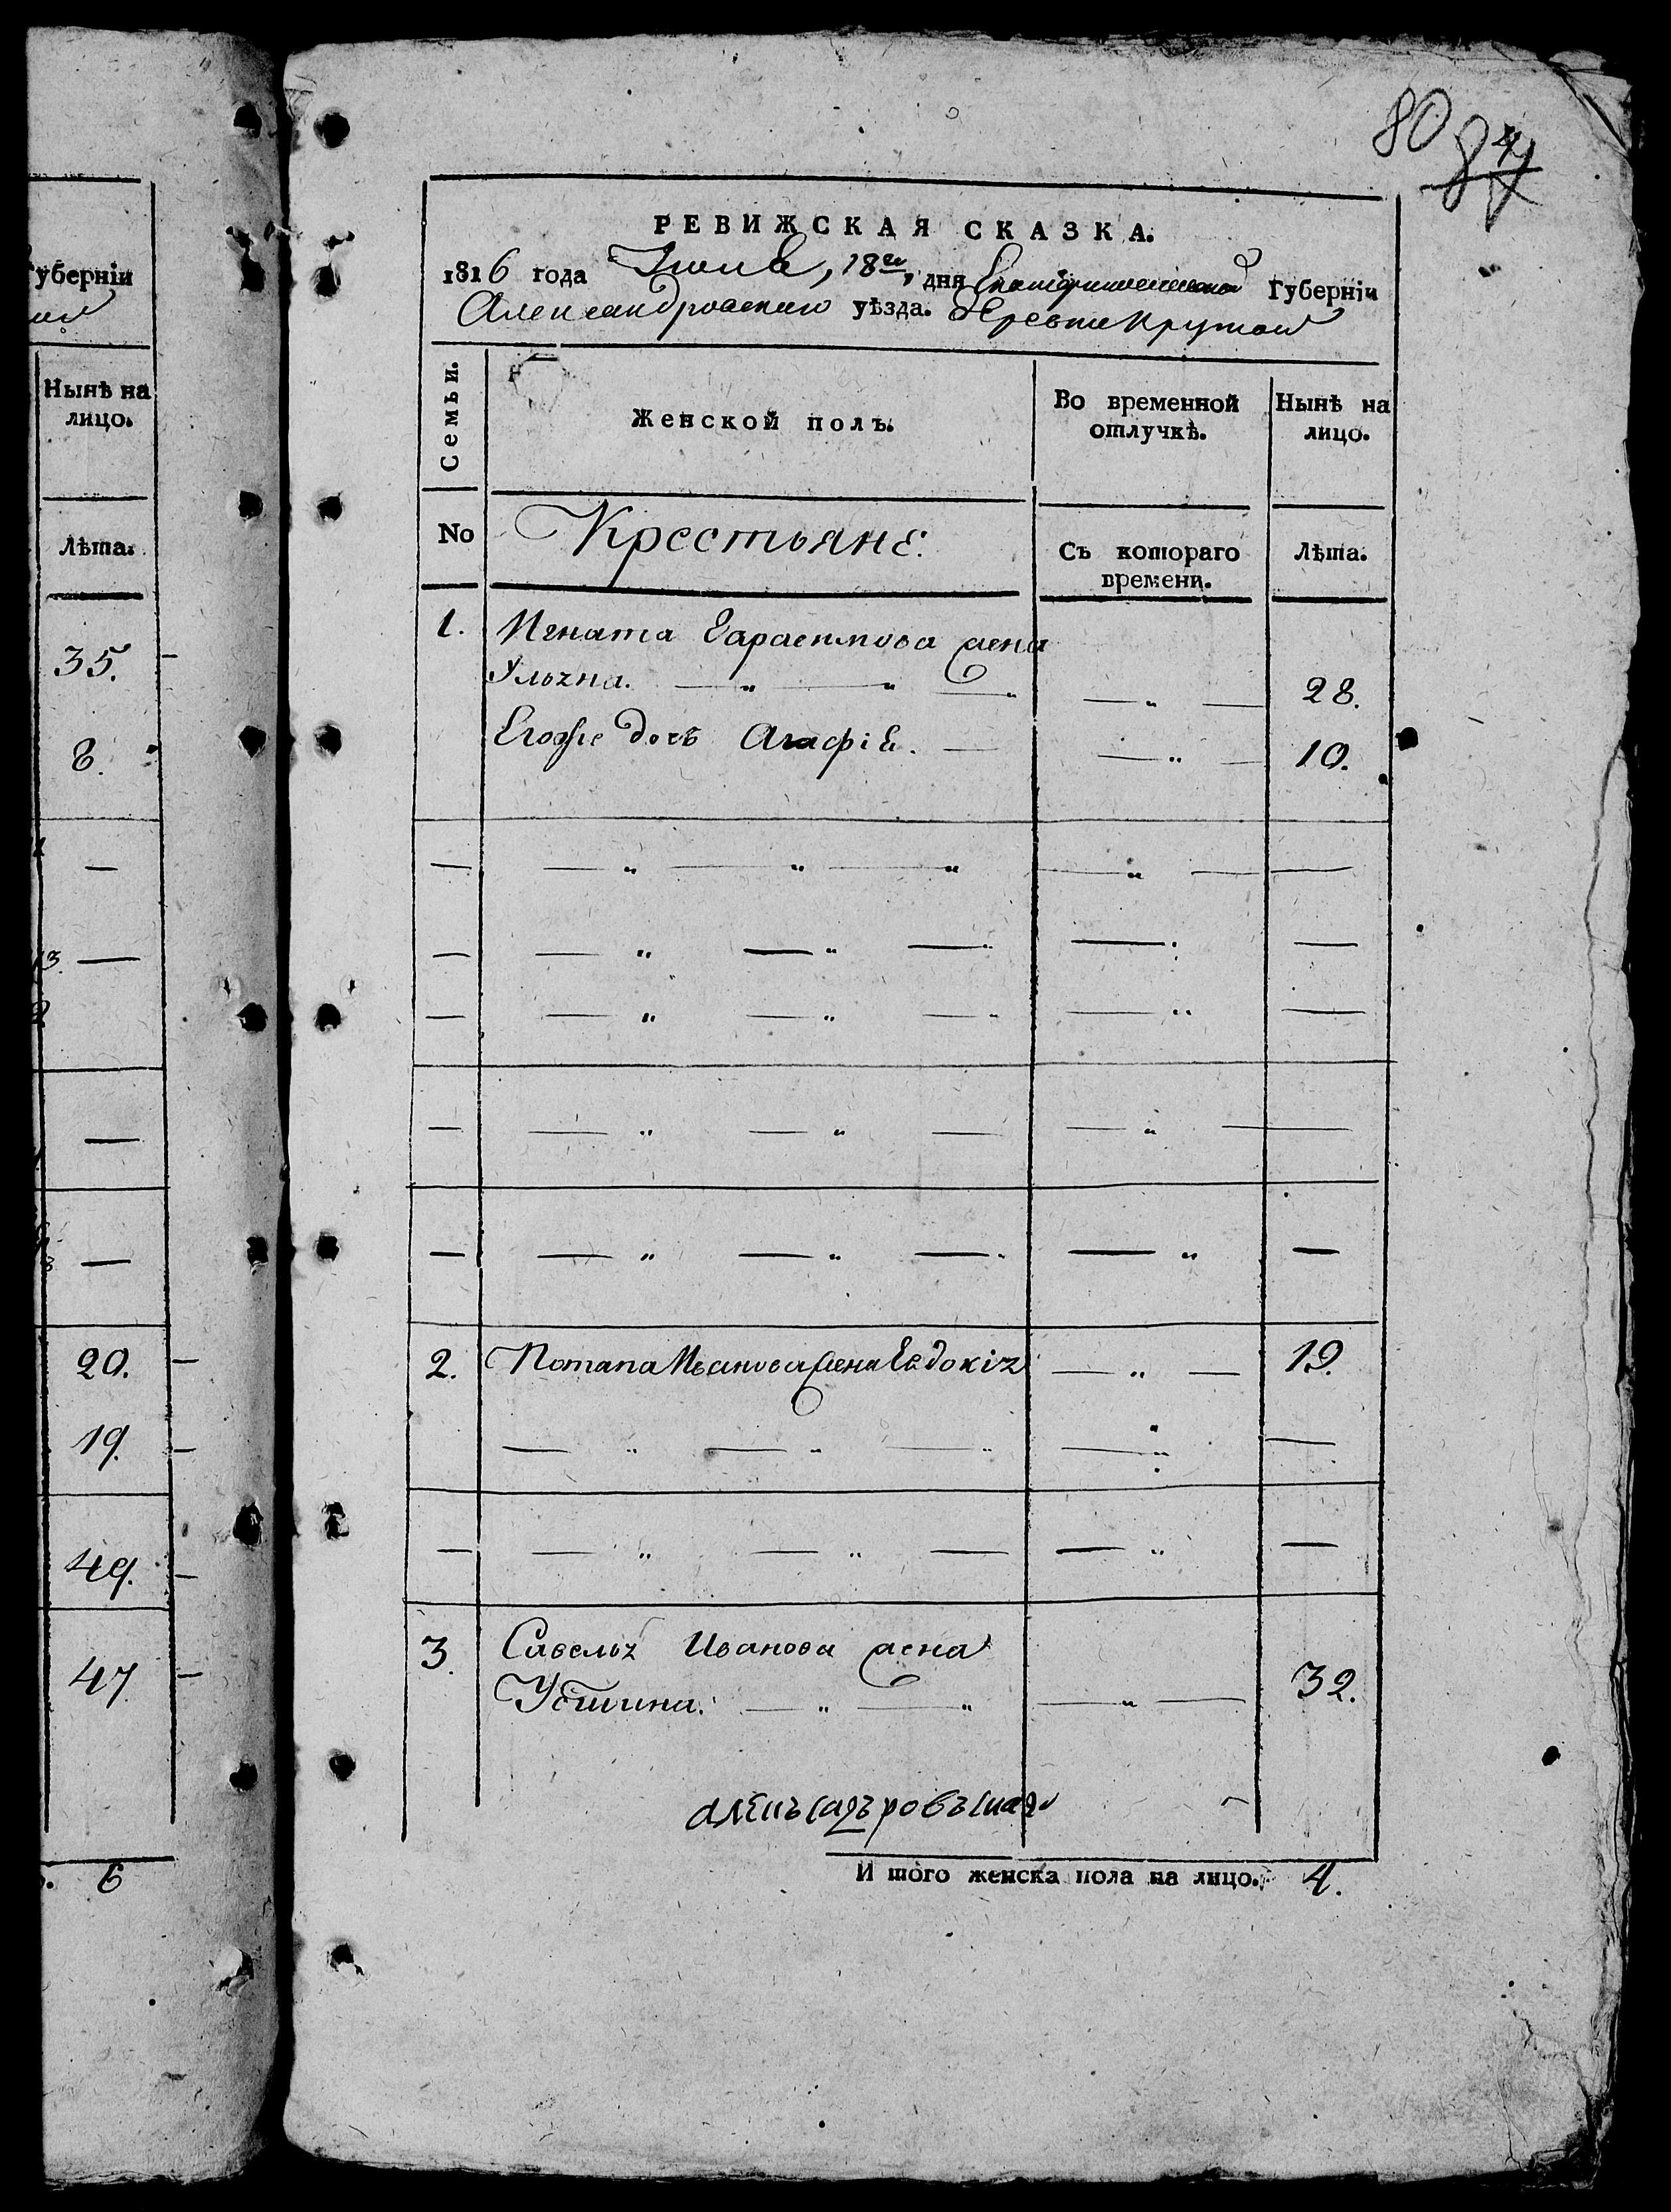 80
84
РЕВИЖСКАЯ СКАЗКА.
1816 года Июня, 18го, дня Екатеринославской Губерніи
Александровскаго уѣзда. Деревни Крутой
Губерніи
Семьи.
Женской полъ.
Во временной отлучкѣ.
Нынѣ на лицо.
Нынѣ на лицо.
No
Крестьяне.
Съ котораго времени.
Лѣта.
Лѣта.
1. Игната Гарасимова жена
Ульяна. — „ — „ — „ — „ — 28.
35.
Егоже дочь Агафія. — — „ — 10.
8.
2. Потапа Иванова жена Евдокія — „ — 19.
20.
19.
49.
3. Савелья Иванова жена
Устинна. — „ — „ — „ — 32.
47
И того женска пола на лицо. 4.
6